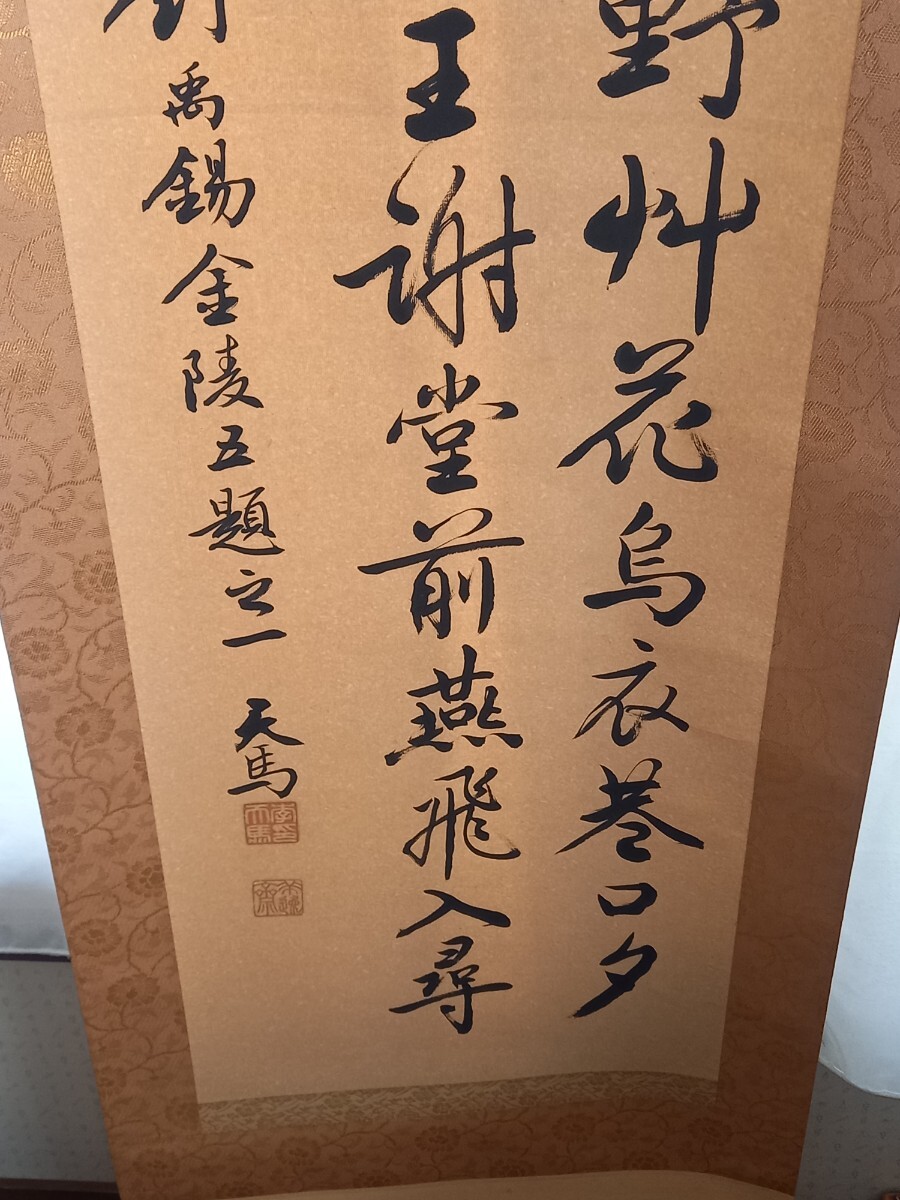 野艸花烏衣巷口夕
王謝堂前燕飛入尋
劉禹錫金陵五題之一 天馬